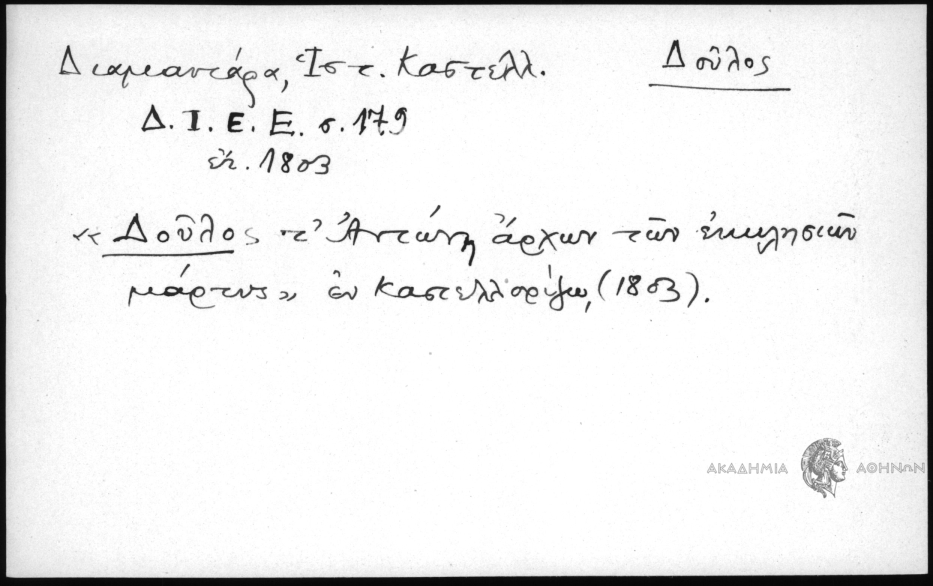 Διαμαντάρα, Ἱστ. Καστελλ.
Δοῦλος
Δ. Ι. Ε. Ε. σ. 179
ἔτ. 1803
« Δοῦλος τ' Ἀντώνη ἄρχων τῶν ἐκκλησιῶν
μάρτυς » ἐν Καστελλορίζῳ, (1803).
ΑΚΑΔΗΜΙΑ ΑΘΗΝΩΝ